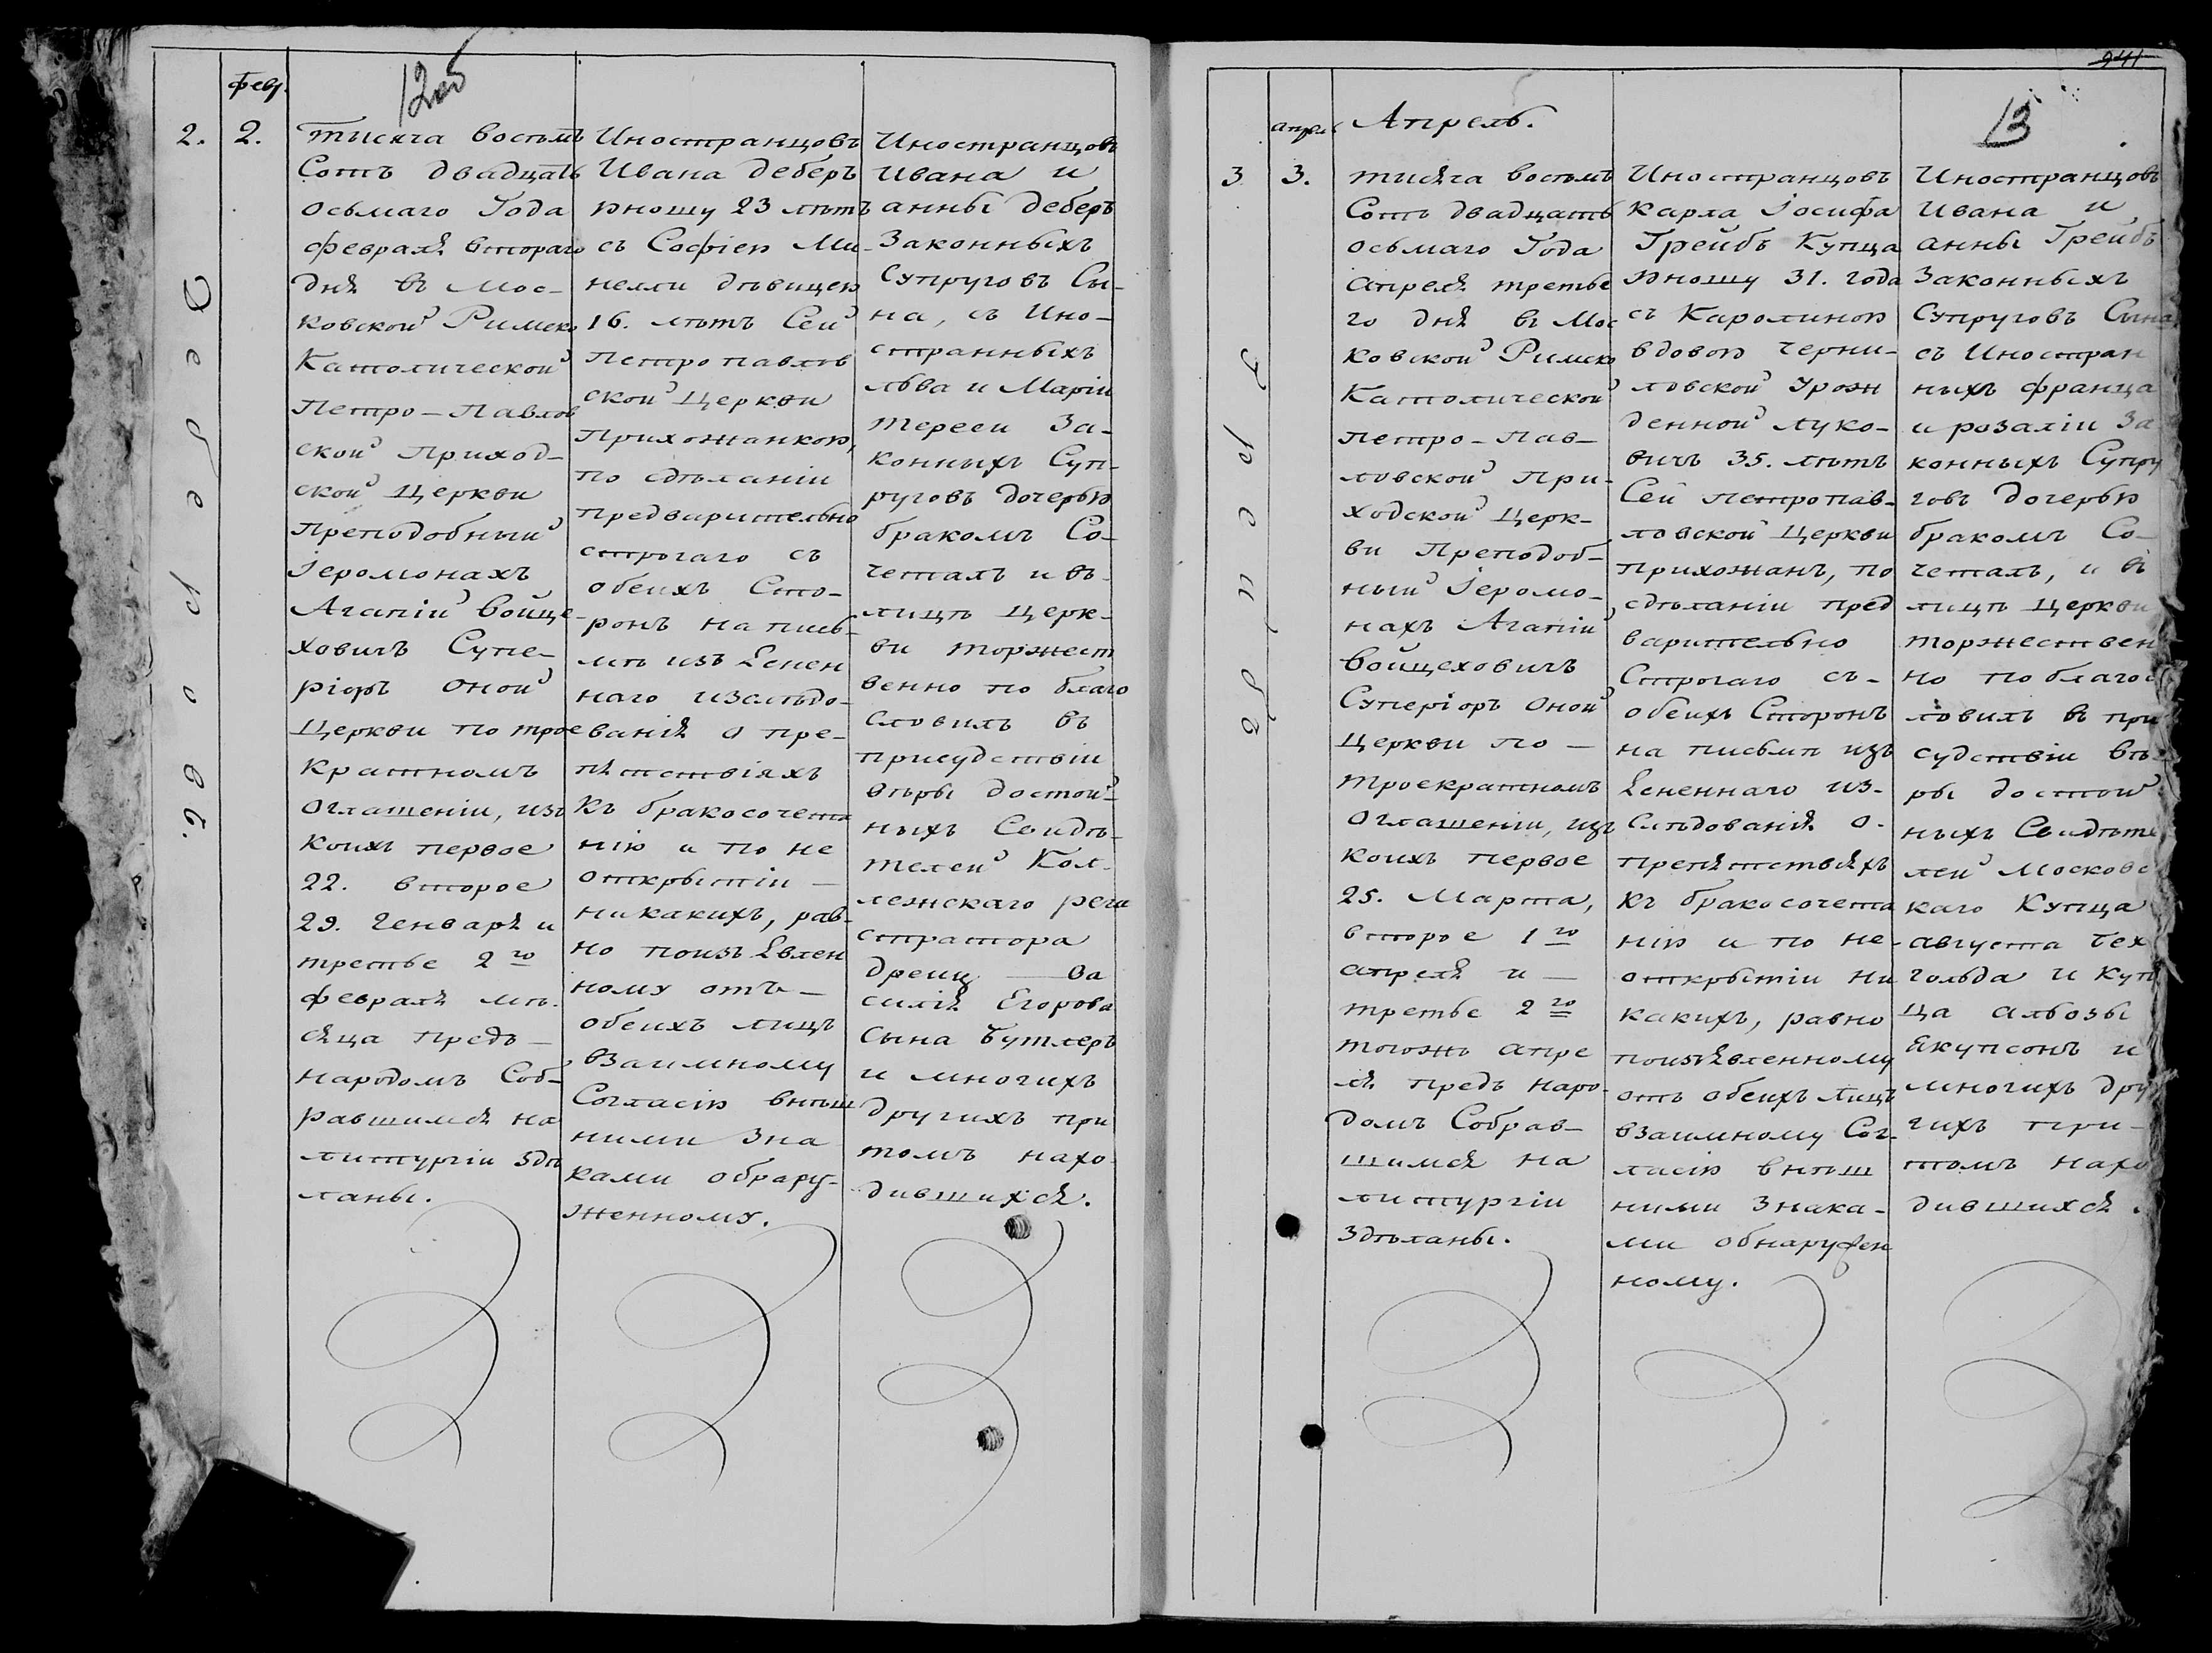 12об
Февр.
2.
2.
Деберовъ.
тысяча восемь
Сотъ двадцать
осьмаго Года
февраля втораго
дня въ Мос-
ковской Римско
Католической
Петро-Павлов
ской Приход-
ской Церкви
Преподобный
Іеромонахъ
Агапій Войце-
ховичъ Супе-
ріоръ оной
Церкви по трое
кратномъ
оглашеніи, изъ
коихъ первое
22. второе
29. Генваря и
третье 2го
февраля мѣ-
сяца предъ
народомъ Соб-
равшимся на
литургіи здѣ
ланы.
Иностранцовъ
Ивана Деберъ
юношу 23 лѣтъ
съ Софіею Ми-
нелли дѣвицею
16. лѣтъ Сей
Петропавлов
ской Церкви
Прихожанкою,
по сдѣланіи
предварительно
строгаго съ
обеихъ Сто-
ронъ на пись-
мѣ изъясней
наго изслѣдо-
ванія о пре-
пятствіяхъ
къ бракосочета
нію и по не
открытіи —
никакихъ, рав-
но поизъявлен
ному отъ —
обеихъ лицъ
взаимному
Согласію внѣш
ними зна
ками обнару-
женному.
Иностранцовъ
Ивана и
анны Деберъ
Законныхъ
Супруговъ Сы-
на, съ Ино-
странныхъ
льва и Маріи
терееи За-
конныхъ Суп-
руговъ дочерью
бракомъ Со-
четалъ и въ
лицѣ Церк-
ви торжест
венно по благо
словилъ въ
присудствіи
вѣры достой-
ныхъ Свидѣ-
телей Кол-
лежскаго реги
стратора
Дрейц — Ва
силія Егорова
Сына Бутлеръ
и многихъ
другихъ при
томъ нахо-
дившихся.
941
13
Апрель
Апрель.
3
3.
Грейбъ
тысяча восемь
Сотъ двадцать
осьмаго Года
Апреля третье
го дня въ Мос
ковской Римско
Католической
Петро-Пав-
ловской При-
ходской Церк-
ви Преподоб-
ный Іеромо-
нахъ Агапій
Войцеховичъ
Суперіоръ Оной
Церкви по —
троекратномъ
Оглашеніи, изъ
коихъ первое
25. Марта,
второе 1го
апреля и —
третье 2го
тогожъ апре
ля предъ наро-
домъ Собрав-
шимся на
литургіи
здѣланы.
Иностранцовъ
Карла Іосифа
Грейбъ Купца
юношу 31. года
съ Каролиною
вдовою Черни-
ловской Урож
денной Луко-
вичъ 35. лѣтъ
Сей Петропав-
ловской Церкви
прихожанъ, по
сдѣланіи пред
варительно
Строгаго съ-
обеихъ Сторонъ
на письмѣ изъ
ясненнаго из-
слѣдованія о-
препятствіяхъ
къ бракосочета
нію и по не-
открытіи ни
какихъ, равно
поизъявленному
отъ обеихъ лицъ
взаимному Сог-
ласію внѣш
ними знака-
ми обнаружен
ному.
Иностранцовъ
Ивана и
анны Грейбъ
Законныхъ
Супруговъ Сына
съ Иностран
ныхъ Франца
и розаліи За
конныхъ Супру
говъ дочерью
бракомъ Со-
четалъ, и въ
лицѣ Церкви
торжествен
но по благос
ловилъ въ при
судствіи вѣ-
ры достой-
ныхъ Свидѣте
лей Московс
каго Купца
августа Бех
гольда и Куп
ца альбозы
Якупсонъ и
многихъ дру
гихъ при-
томъ нахо
дившихся.